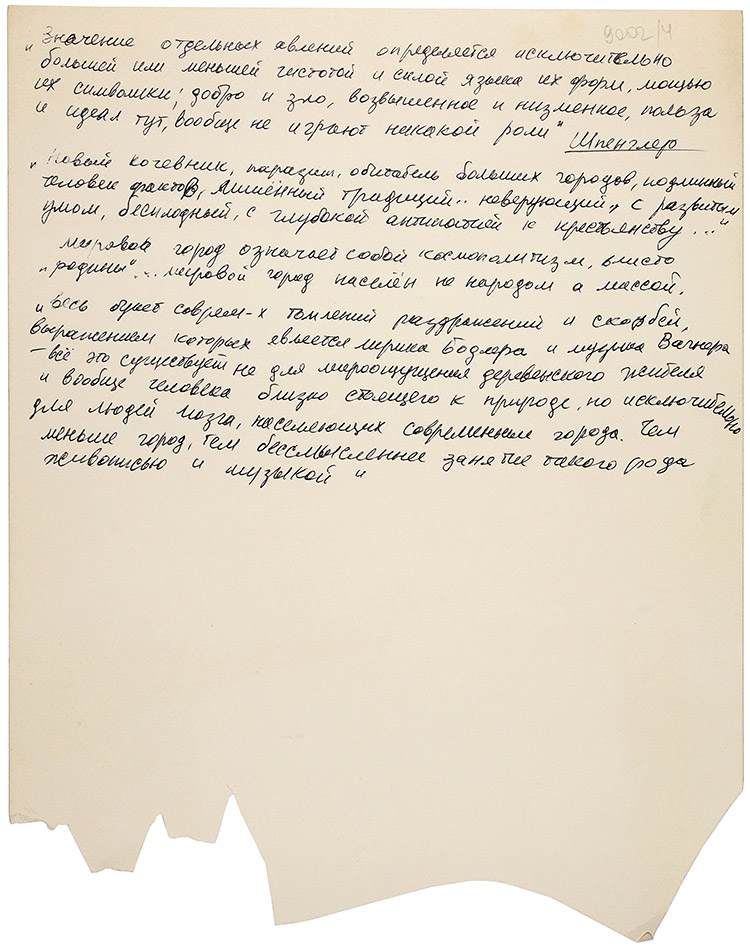 9002/4
„Значение отдельных явлений определяется исключительно
большей или меньшей чистотой и силой языка их форм, мощью
их символики; добро и зло, возвышенное и низменное, польза
и идеал тут, вообще не играют никакой роли" Шпенглер
„Новый кочевник, паразит, обитатель больших городов, подлинный
человек фактов, лишённый традиций.. неверующий,, с развитым
умом, бесплодный, с глубокой антипатией к крестьянству..."
мировой город означает собой космополитизм, вместо
„родины"... мировой город населён не народом а массой.
„Весь букет соврем-х томлений раздражений и скорбей,
выражением которых является лирика Бодлера и музыка Вагнера
– всё это существует не для мироощущения деревенского жителя
и вообще человека близко стоящего к природе, но исключительно
для людей мозга, населяющих современные города. Чем
меньше город, тем бессмысленнее занятие такого рода
живописью и музыкой"